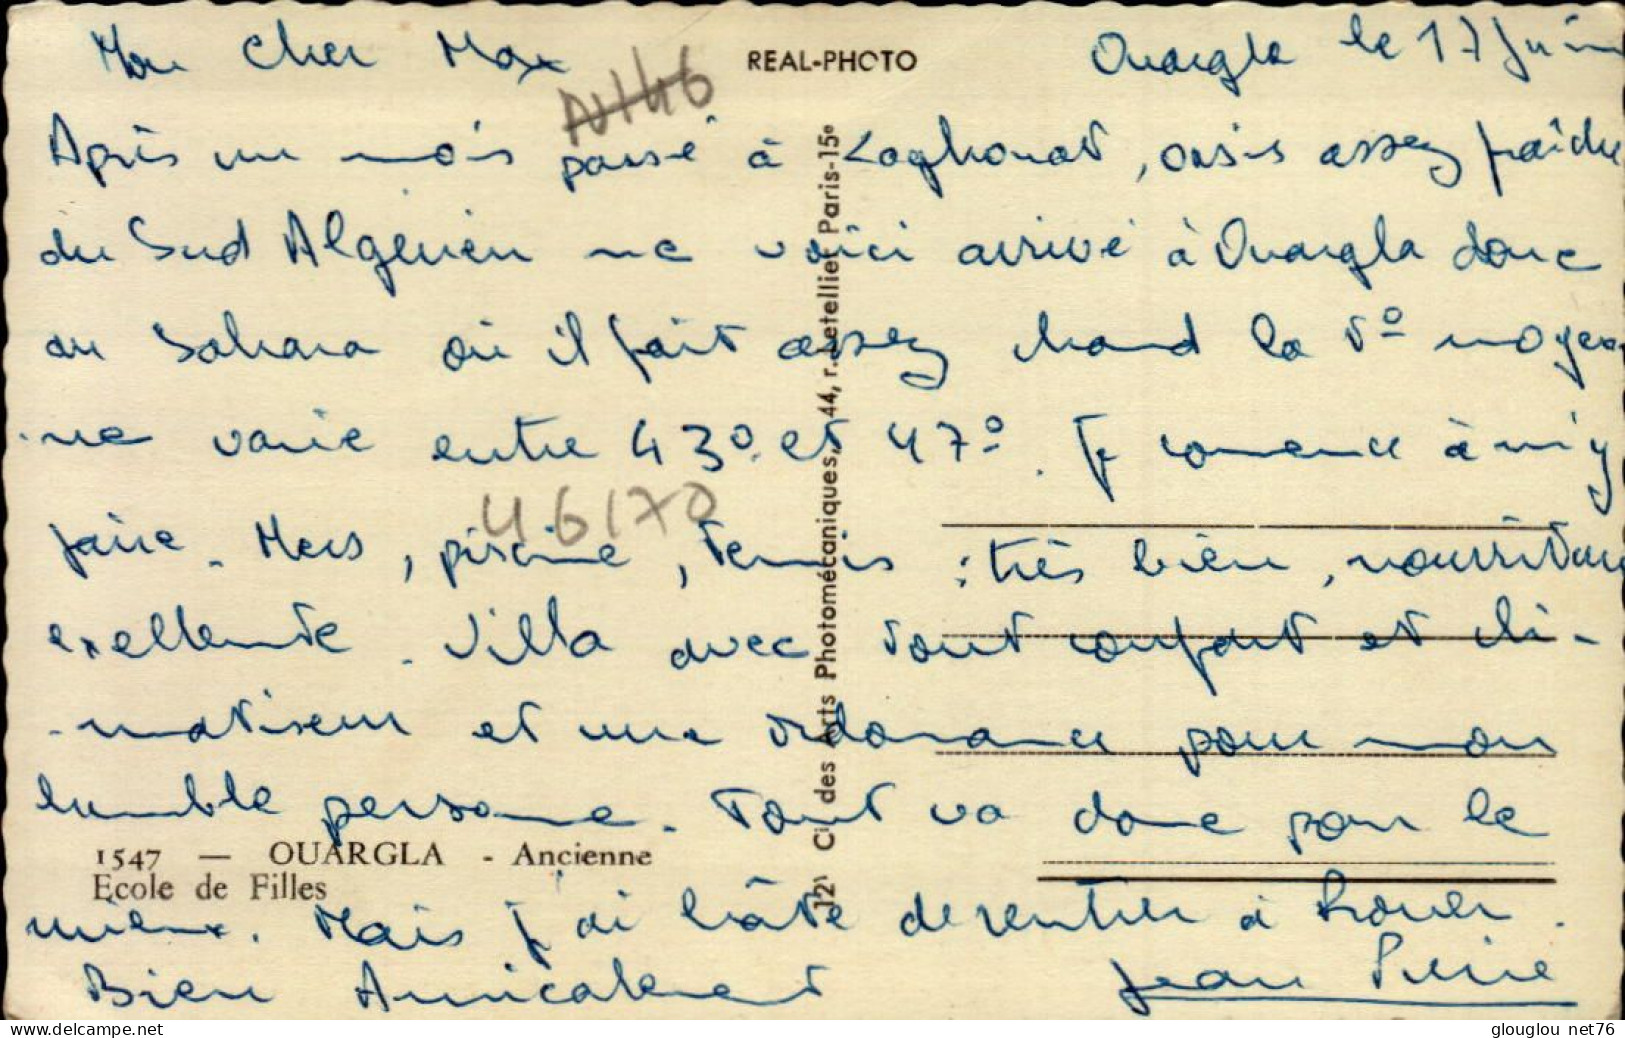 Mon cher Max
REAL-PHOTO
Ouargla le 17 Juin
Après un mois passé à Laghouat, oasis assez fraîche
du Sud Algérien me voici arrivé à Ouargla donc
au Sahara où il fait assez chaud la t° moyen-
-ne varie entre 43° et 47°. Je comence à m'y
faire. Mess, piscine, tennis : très bien, nourriture
exellente. Villa avec tout confort et cli-
-matiseur et une ordonance pour mon
humble persone. Tout va donc pour le
mieux. Mais j'ai hâte de rentrer à Rouen.
Bien Amicalement
Jean Pierre
46170
1547 — OUARGLA - Ancienne
Ecole de Filles
des Arts Photomécaniques, 44, r. Letellier Paris-15e
delcampe.net
glouglou net76